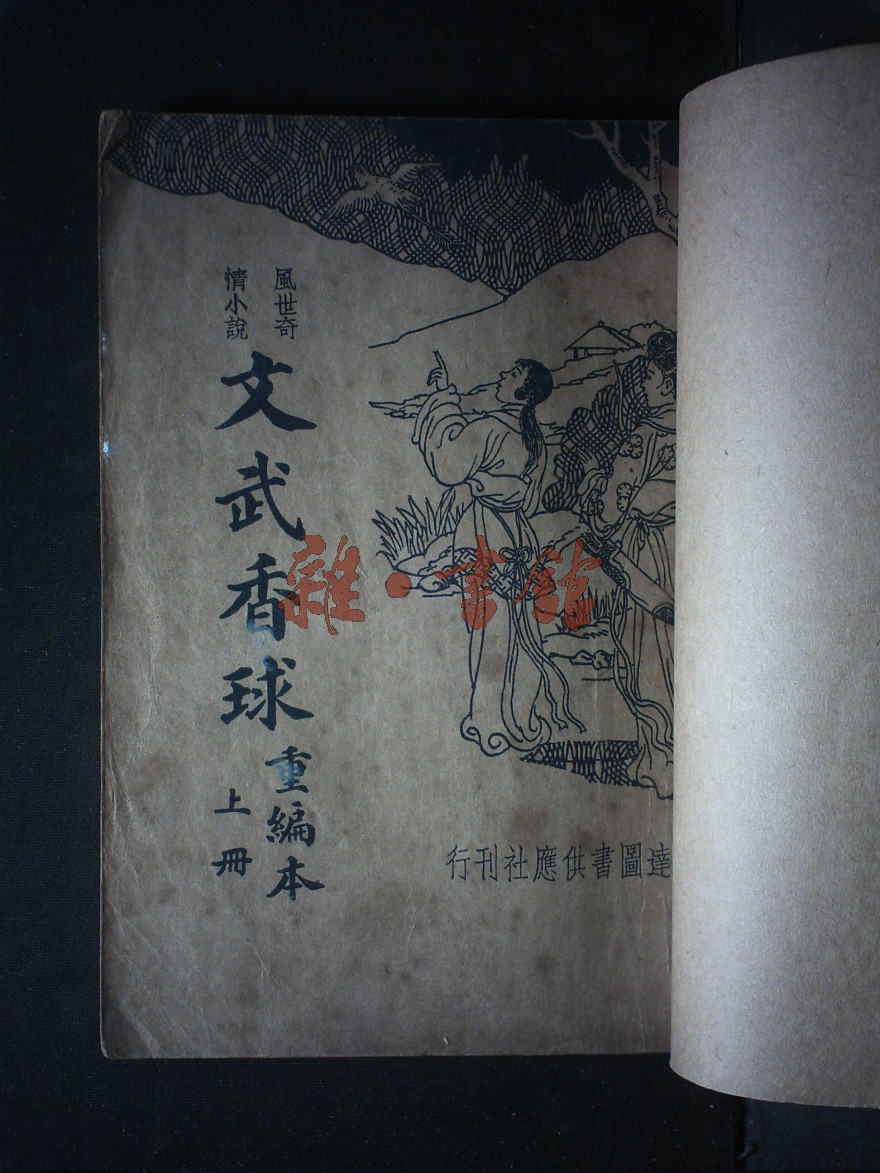 風世奇
情小說
文武香球
重編本
上冊
達圖書供應社刊行
雜·書館